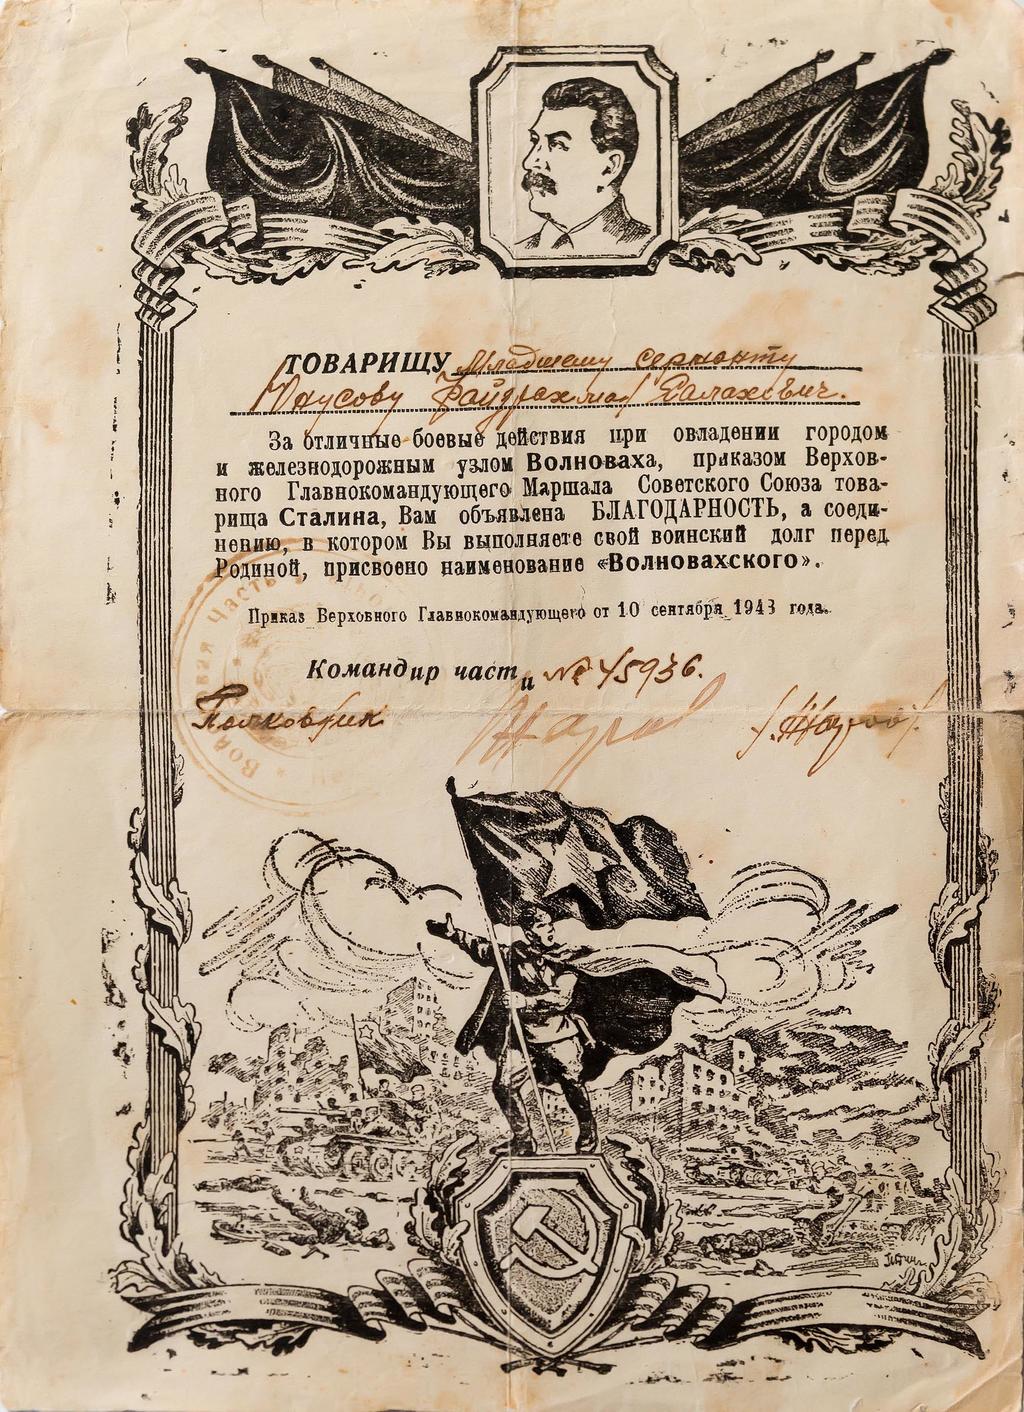 ТОВАРИЩУ Младшему сержанту
Юнусову Файдрахман Салахович.
За отличные боевые действия при овладении городом
и железнодорожным узлом Волноваха, приказом Верхов-
ного Главнокомандующего Маршала Советского Союза това-
рища Сталина, Вам объявлена БЛАГОДАРНОСТЬ, а соеди-
нению, в котором Вы выполняете свой воинский долг перед
Родиной, присвоено наименование «Волновахского».
Приказ Верховного Главнокомандующего от 10 сентября 1943 года.
Командир части № 45936.
Полковник